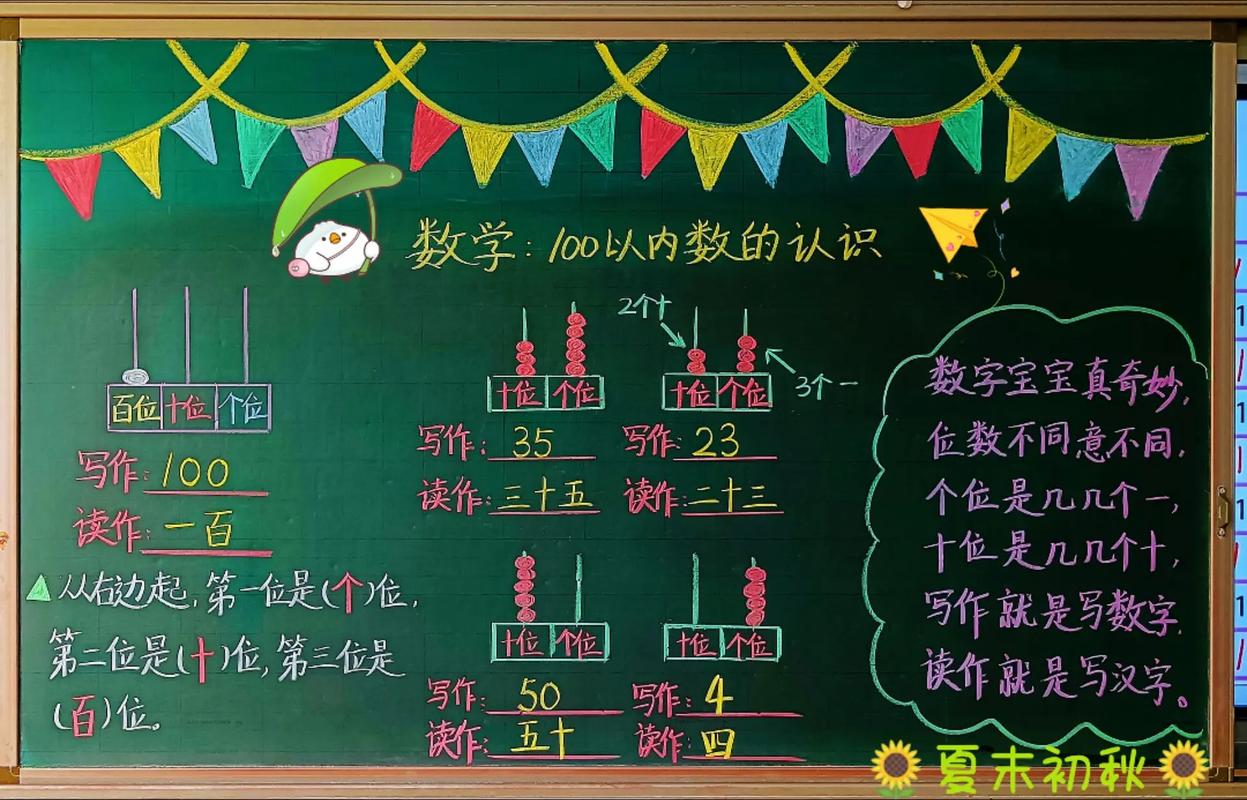 数学：100以内数的认识
百位 十位 个位
写作：100
读作：一百
▲从右边起，第一位是（个）位，
第二位是（十）位，第三位是
（百）位。
十位 个位
写作：35
读作：三十五
2个十
3个一
十位 个位
写作：23
读作：二十三
十位 个位
写作：50
读作：五十
十位 个位
写作：4
读作：四
数字宝宝真奇妙，
位数不同意不同，
个位是几几个一，
十位是几几个十，
写作就是写数字，
读作就是写汉字。
夏末初秋